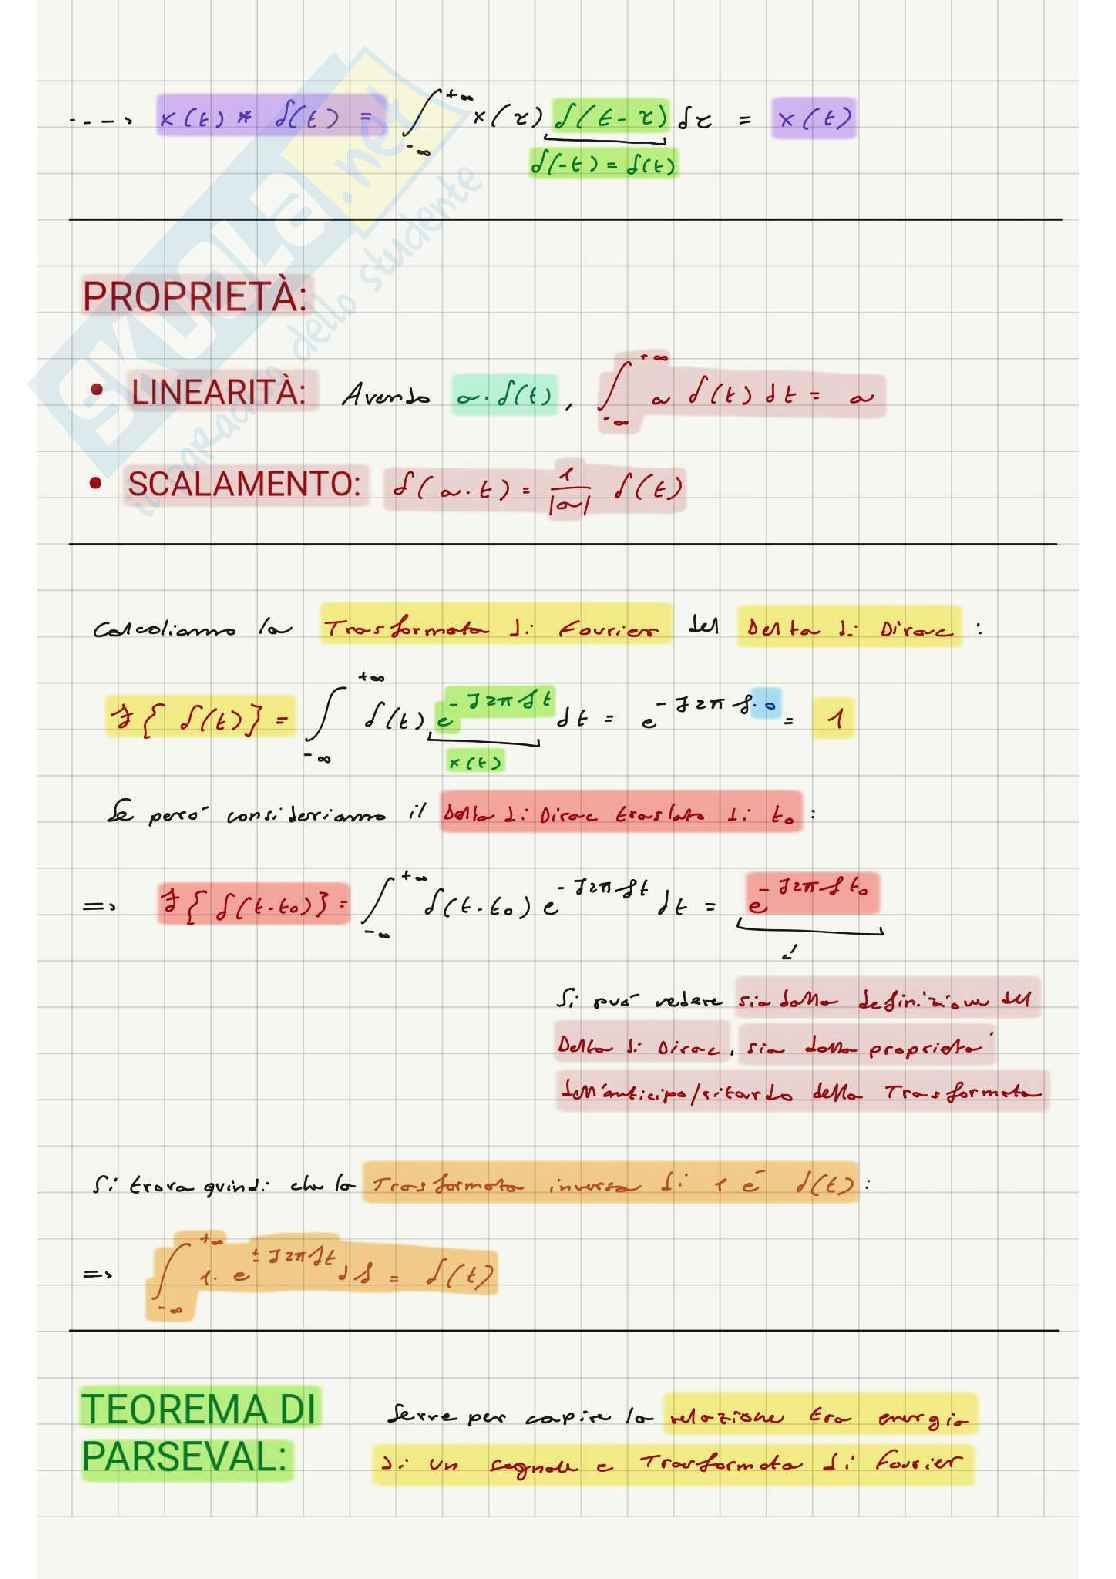 ---> x(t) * δ(t) = ∫_{-∞}^{+∞} x(τ) δ(t-τ) dτ = x(t)
δ(-t) = δ(t)
PROPRIETÀ:
• LINEARITÀ: Avendo a·δ(t), ∫_{-∞}^{+∞} a δ(t) dt = a
• SCALAMENTO: δ(a·t) = 1/|a| δ(t)
Calcoliamo la Trasformata di Fourier del Delta di Dirac :
F{ δ(t)} = ∫_{-∞}^{+∞} δ(t) e^{-J2πft} dt = e^{-J2πf·0} = 1
x(t)
Se però consideriamo il Delta di Dirac traslato di t₀ :
=> F{ δ(t-t₀)} = ∫_{-∞}^{+∞} δ(t-t₀) e^{-J2πft} dt = e^{-J2πft₀}
Si può vedere sia dalla definizione del
Delta di Dirac, sia dalla proprietà
dell'anticipo/ritardo della Trasformata
Si trova quindi che la Trasformata inversa di 1 è δ(t) :
=> ∫_{-∞}^{+∞} 1· e^{±J2πft} df = δ(t)
TEOREMA DI PARSEVAL: Serve per capire la relazione tra energia
di un segnale e Trasformata di Fourier
SKUOLA.net
il paradiso dello studente